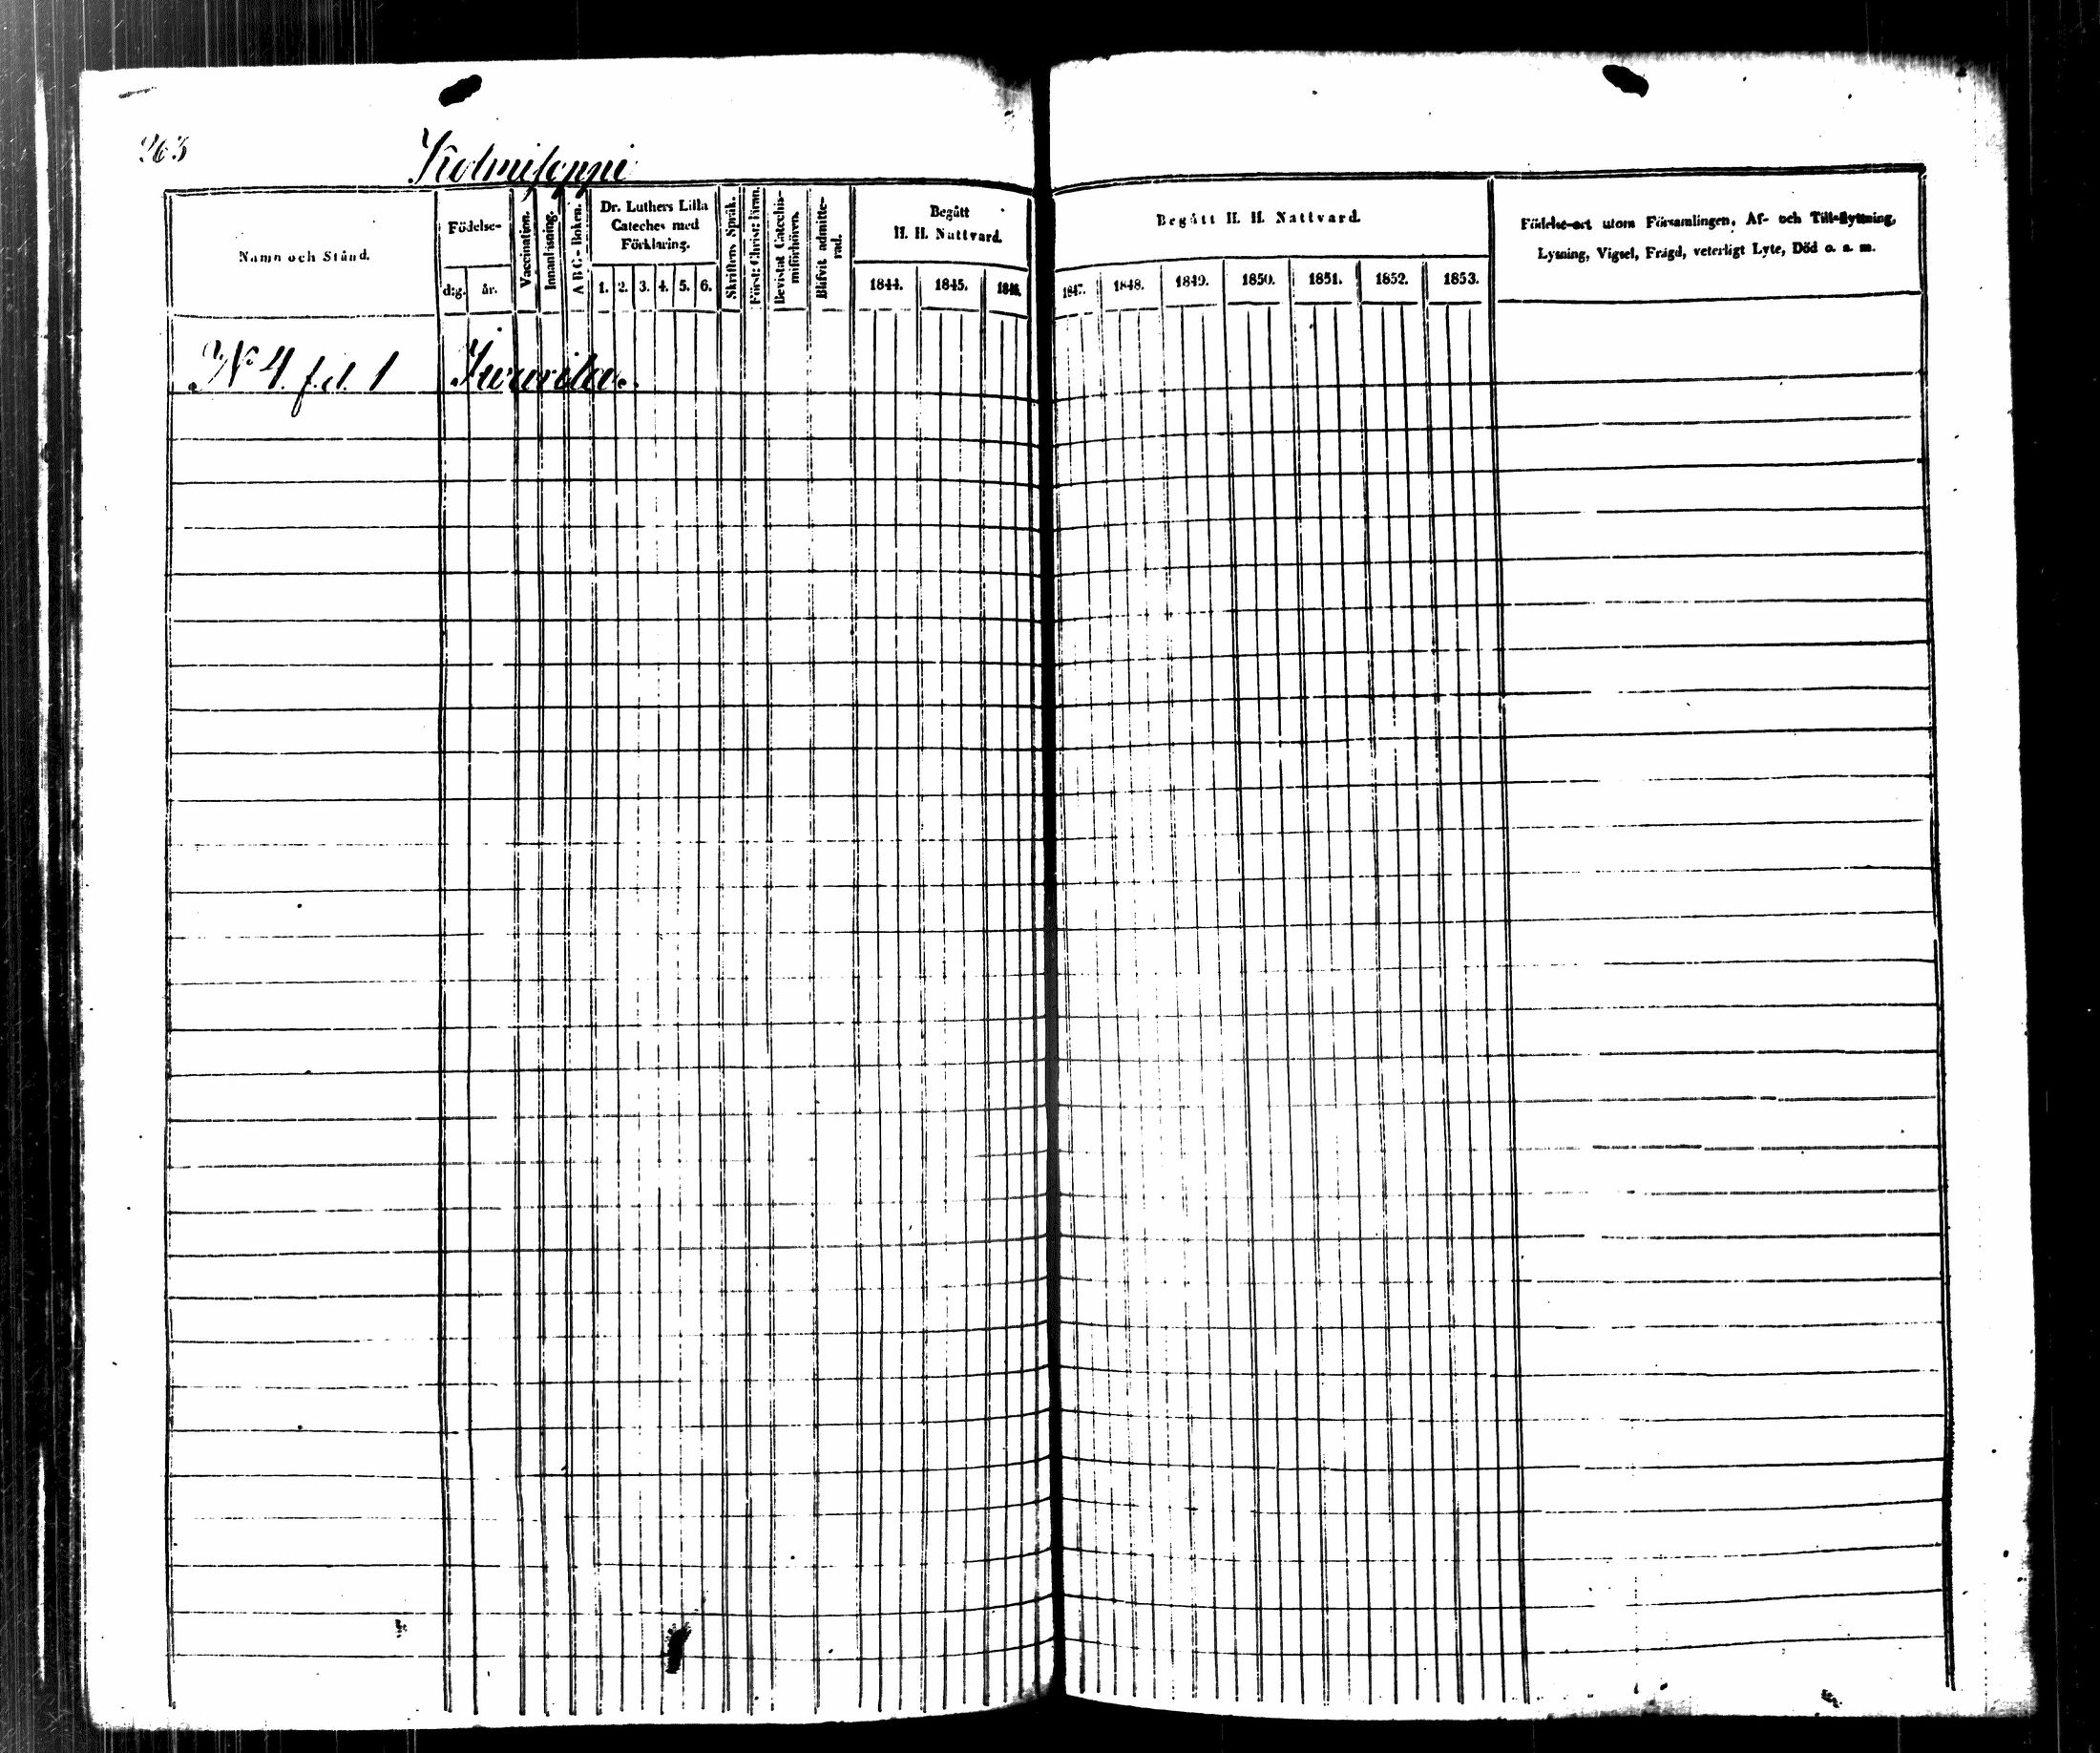 263
Kolmisoppi
Namn och Stånd.
Födelse-
d:g.
år.
Vaccination.
Innanläsning.
A B C-Boken.
Dr. Luthers Lilla
Cateches med
Förklaring.
1. 2. 3. 4. 5. 6.
Skriftens Språk.
Först: Christ: Lärn.
Bevistat Catechis-
miförhören.
Blifvit admitte-
rad.
Begått
H. H. Nattvard.
1844. 1845. 1846.
Begått H. H. Nattvard.
1847. 1848. 1849. 1850. 1851. 1852. 1853.
Födelse-ort utom Församlingen, Af- och Till-flyttning,
Lysning, Vigsel, Frägd, veterligt Lyte, Död o. s. m.
No 4 f.d. 1